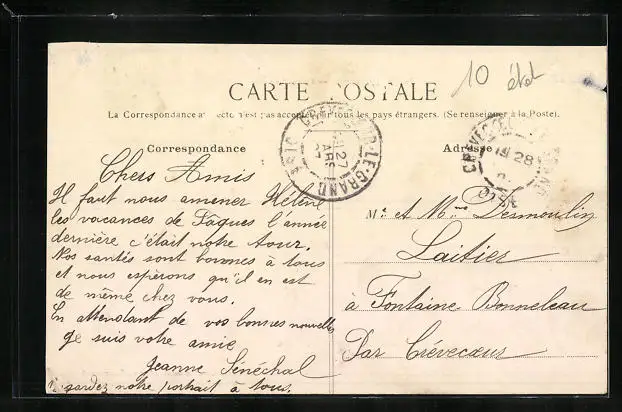 10 état
CARTE POSTALE
La Correspondance au recto n'est pas acceptée par tous les pays étrangers. (Se renseigner à la Poste).
Correspondance
Adresse
CREVECOEUR-LE-GRAND OISE
27
28
Chers Amis
Il faut nous amener Hélène
les vacances de Pâques l'année
dernière c'était notre tour.
Nos santés sont bonnes à tous
et nous espèrons qu'il en est
de même chez vous.
En attendant de vos bonnes nouvelles
je suis votre amie
Jeanne Sénéchal
Regardez notre portrait à tous.
Mr et Mme Desmoulin
Laitier
à Fontaine Bonneleau
Par Crévecoeur